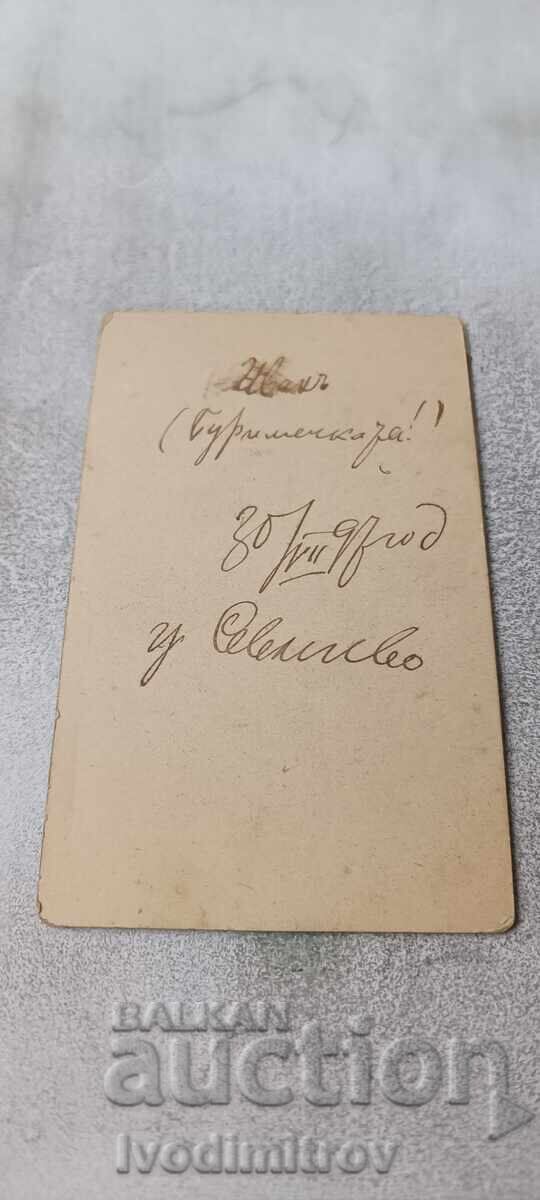 Иванъ
(Буримечката!!)
30/VII 97 год
гр Севлиево
BALKAN
auction
Ivodimitrov